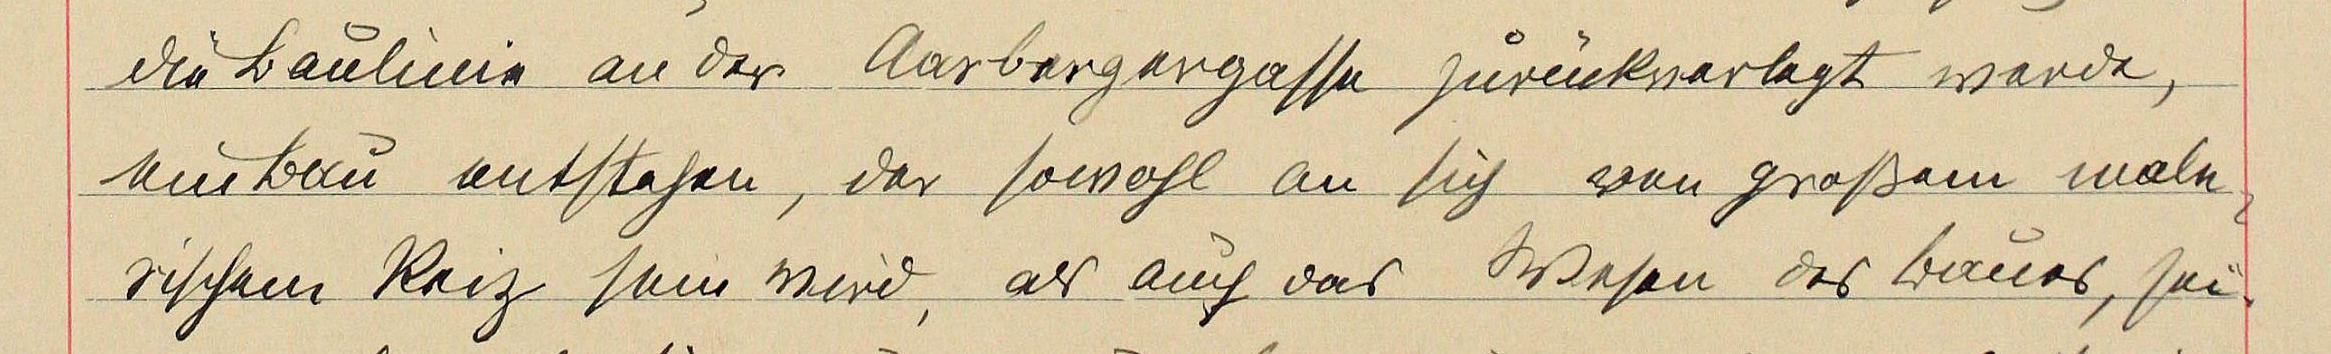 die Baulinie an der Aarbergergasse zurückverlegt werde,
ein Bau entstehen, der sowohl an sich von großem male-
rischem Reiz sein wird, als auch das Wesen des Baues, sei-